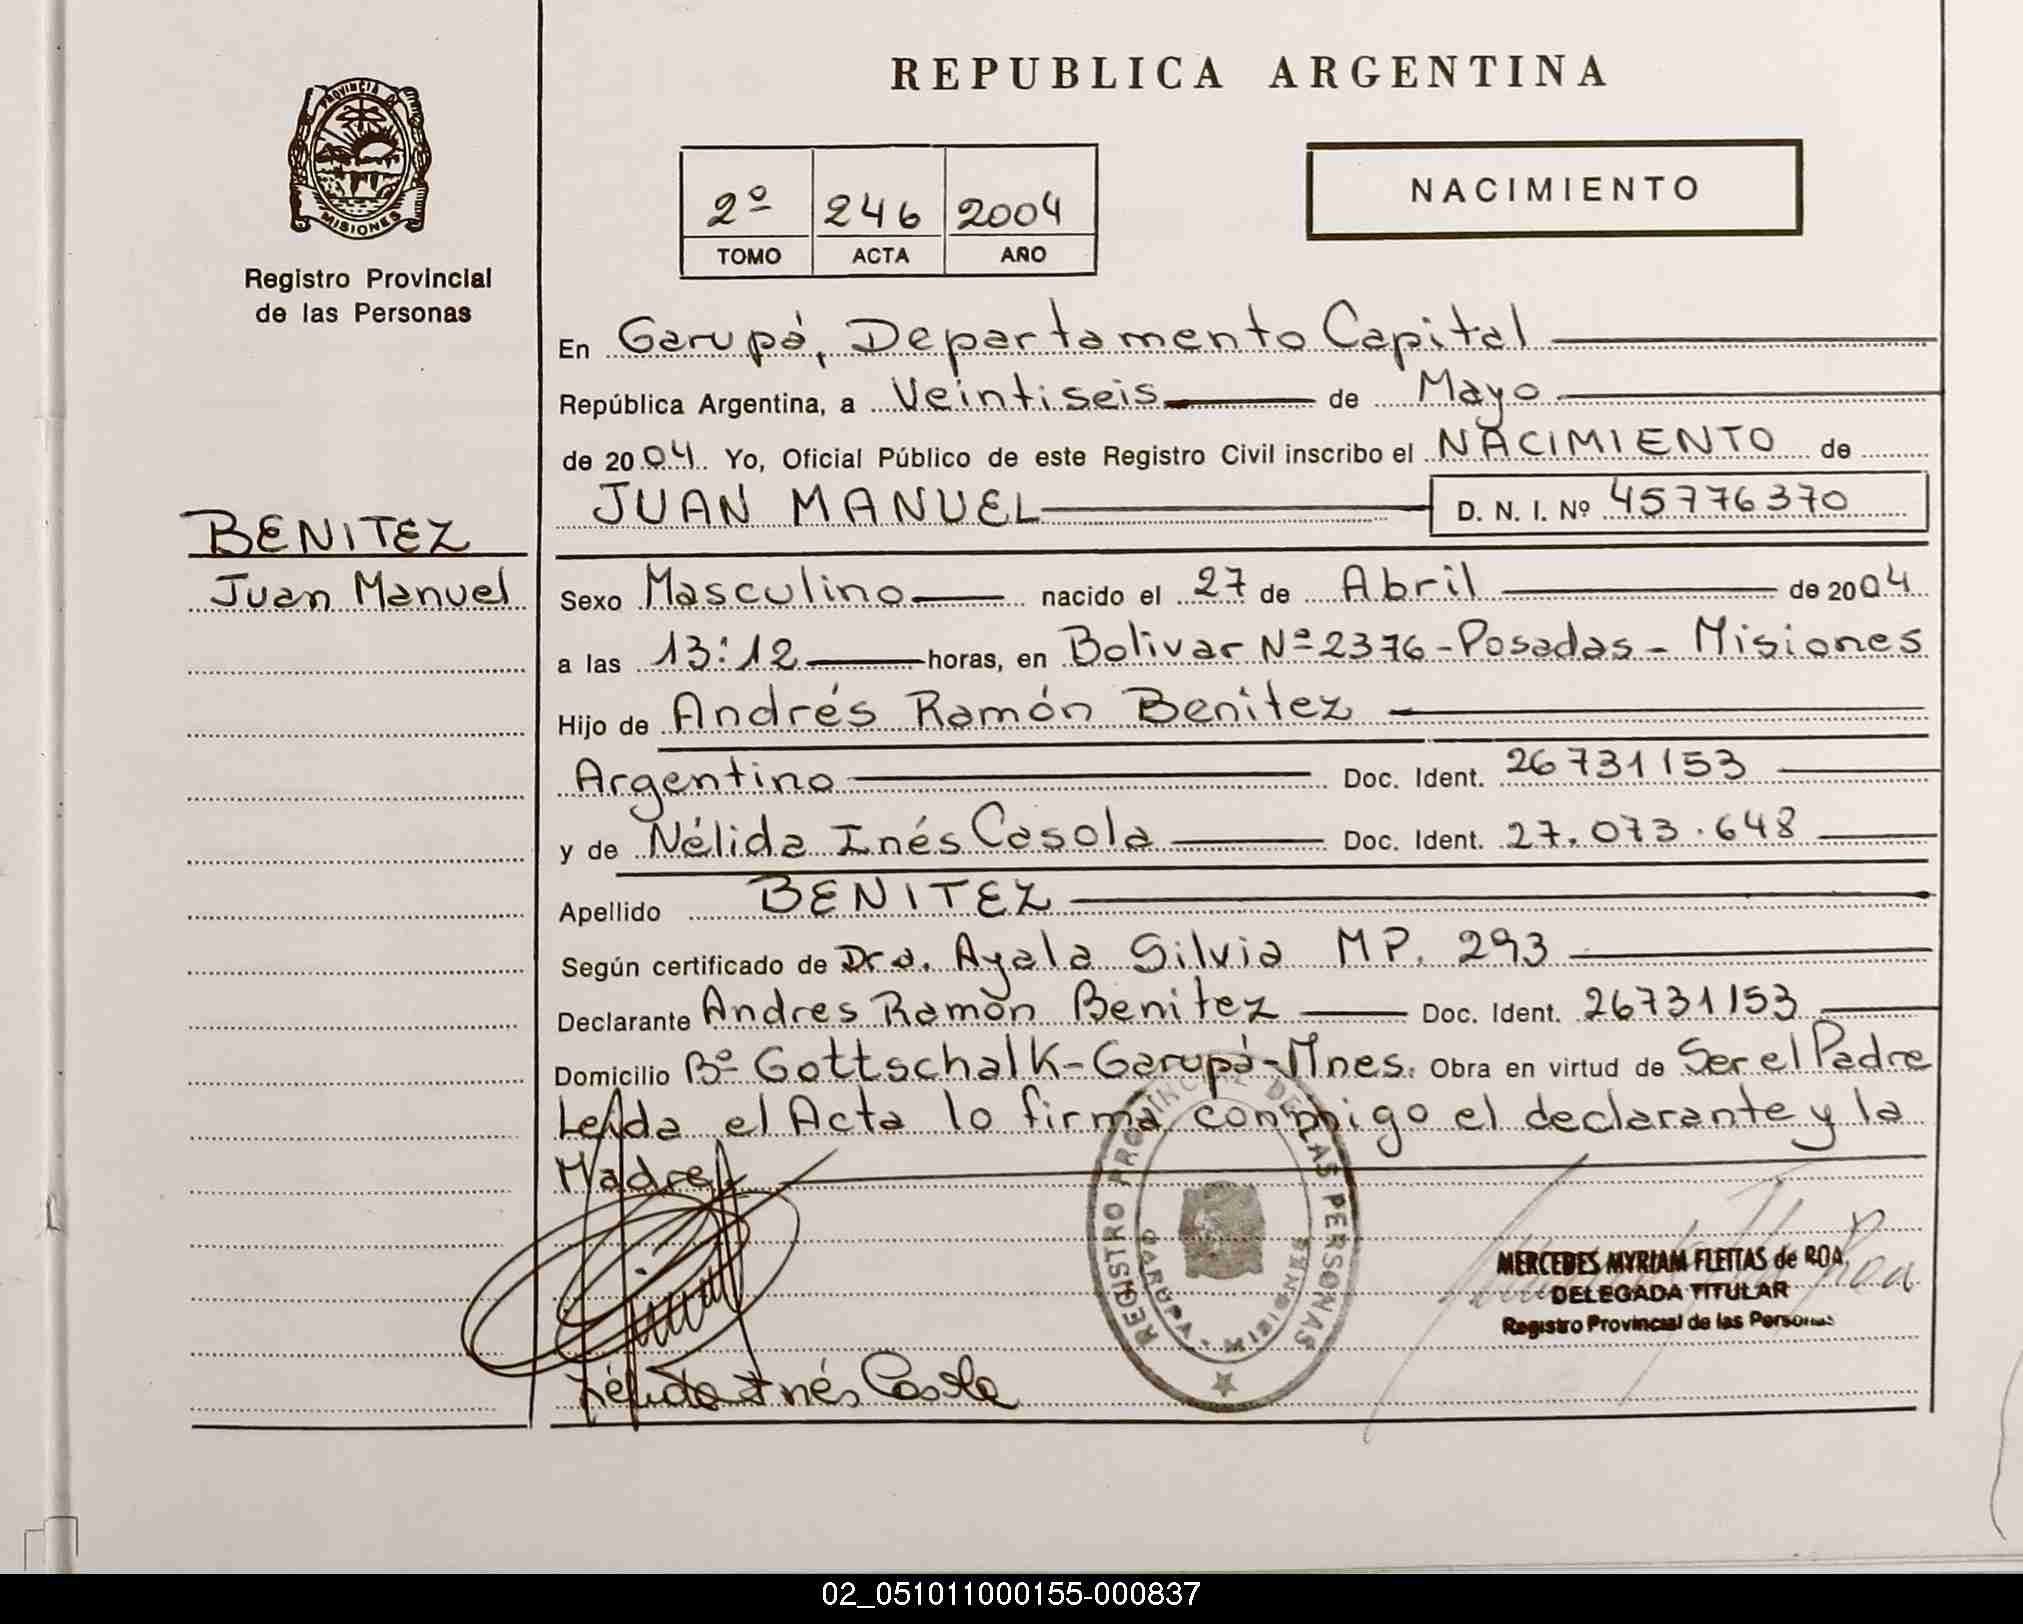 REPUBLICA ARGENTINA
PROVINCIA DE
MISIONES
Registro Provincial
de las Personas
2º 246 2004
TOMO ACTA AÑO
NACIMIENTO
En Garupá, Departamento Capital
República Argentina, a Veintiseis de Mayo
de 2004. Yo, Oficial Público de este Registro Civil inscribo el NACIMIENTO de
JUAN MANUEL D. N. I. Nº 45776370
BENITEZ
Juan Manuel
Sexo Masculino nacido el 27 de Abril de 2004
a las 13:12 horas, en Bolivar Nº 2376 - Posadas - Misiones
Hijo de Andrés Ramón Benitez
Argentino Doc. Ident. 26731153
y de Nélida Inés Casola Doc. Ident. 27.073.648
Apellido BENITEZ
Según certificado de Dra. Ayala Silvia MP. 293
Declarante Andres Ramón Benitez Doc. Ident. 26731153
Domicilio Bº Gottschalk-Garupá-Mnes. Obra en virtud de Ser el Padre
Leida el Acta lo firma conmigo el declarante y la
Madre
REGISTRO PROVINCIAL DE LAS PERSONAS
GARUPA - MISIONES
MERCEDES MYRIAM FLEITAS de ROA
DELEGADA TITULAR
Registro Provincial de las Personas
Nélida Inés Casola
02_051011000155-000837